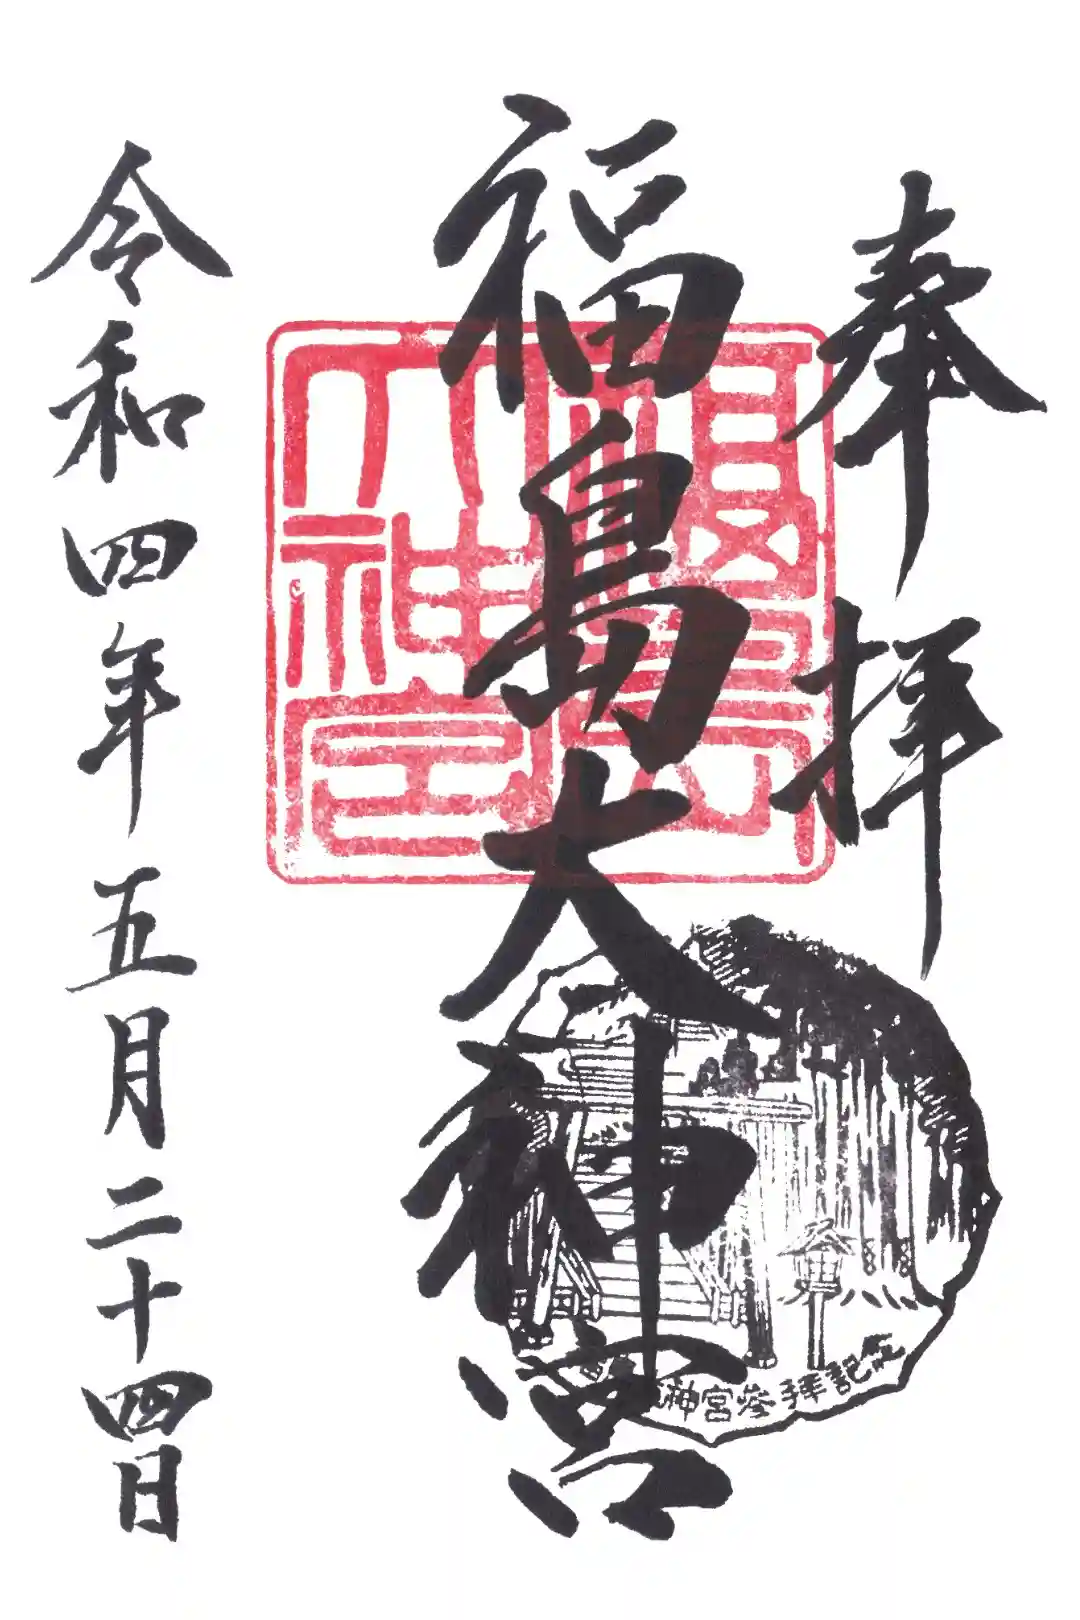 奉拝
福島大神宮
令和四年五月二十四日
神宮参拝記念